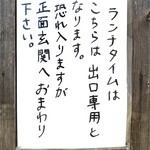 ランチタイムは
こちらは出口専用と
なります。
恐れ入りますが
正面玄関へおまわり
下さい。